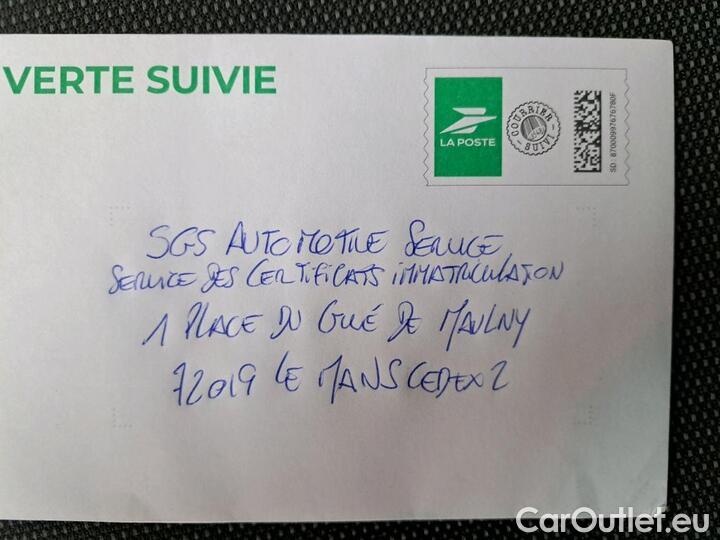 VERTE SUIVIE
LA POSTE
COURRIER SUIVI
SD : 87000997676780F
SGS AUTOMOTIVE SERVICE
SERVICE DES CERTIFICATS IMMATRICULATION
1 PLACE DU GUÉ DE MAULNY
72019 LE MANS CEDEX 2
CarOutlet.eu